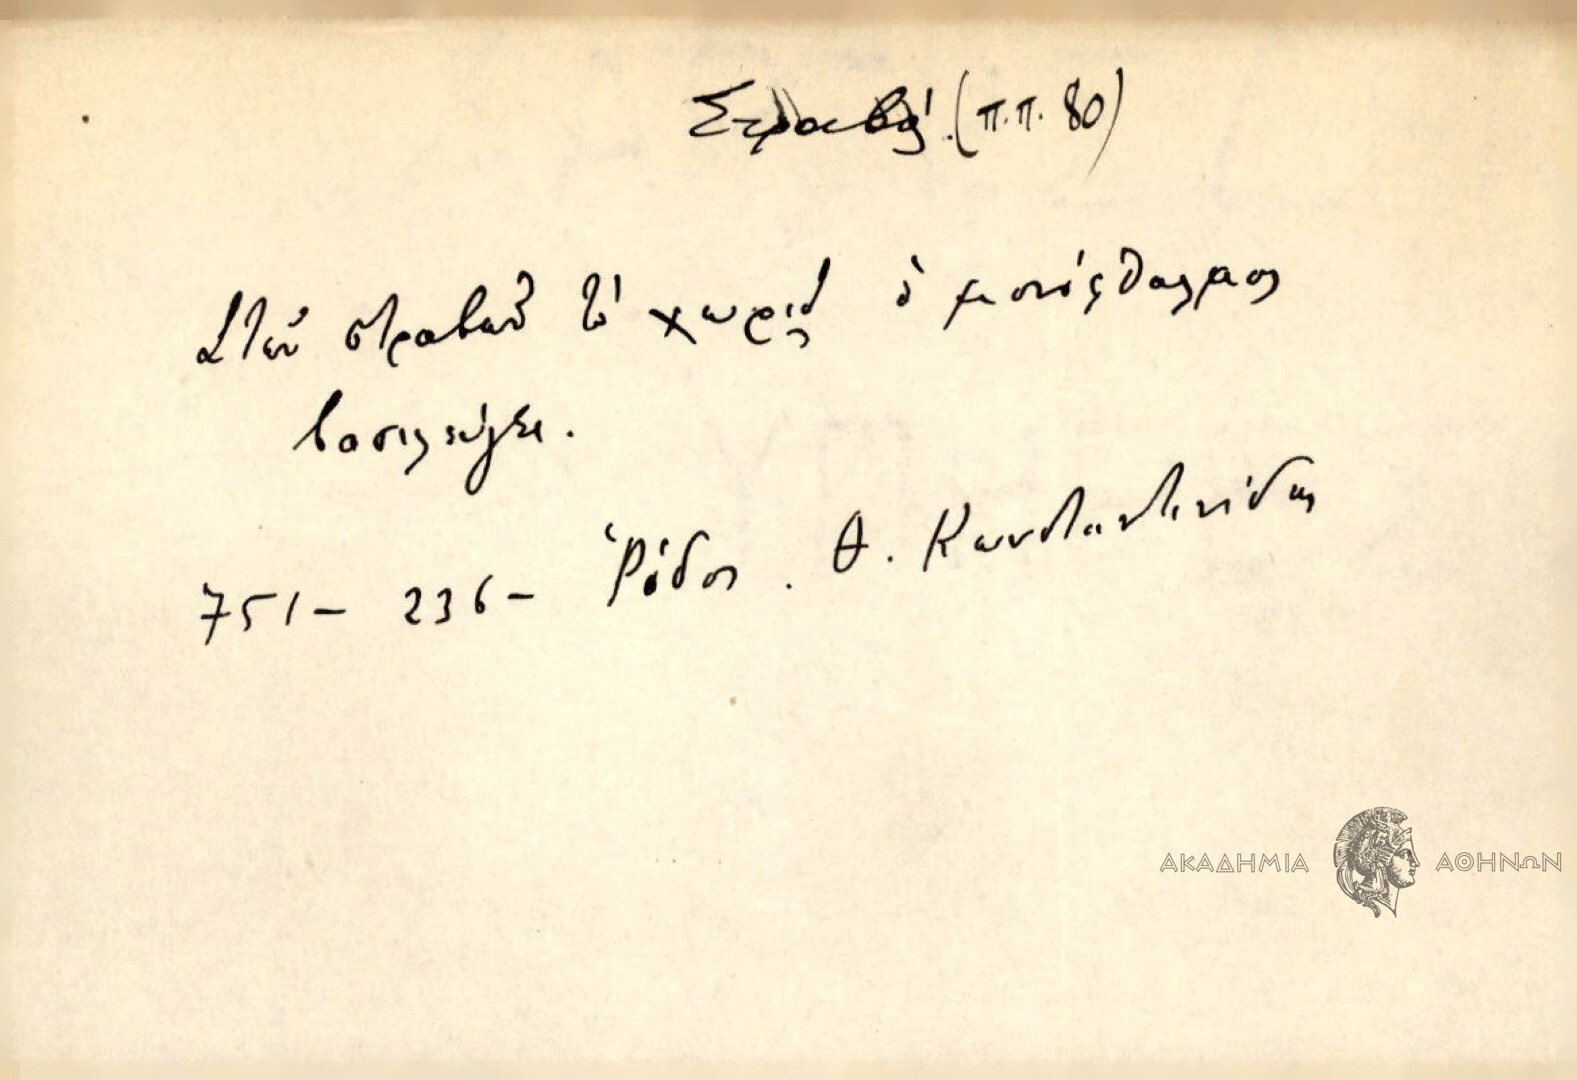 Στραβός (π.π. 80)
Στῶν στραβῶν τὸ χωριὸ ὁ μονόφθαλμος
βασιλεύγει.
751 - 236 - Ῥόδος. Θ. Κωνσταντινίδης
ΑΚΑΔΗΜΙΑ ΑΘΗΝΩΝ